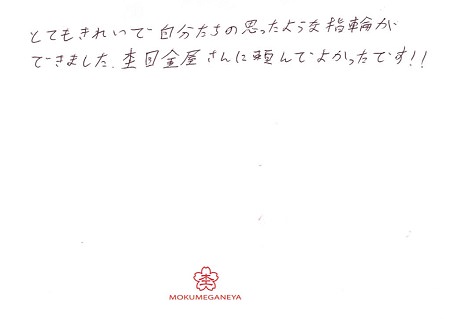 とてもきれいで自分たちの思ったような指輪が
できました。杢目金屋さんに頼んでよかったです!!
杢
MOKUMEGANEYA